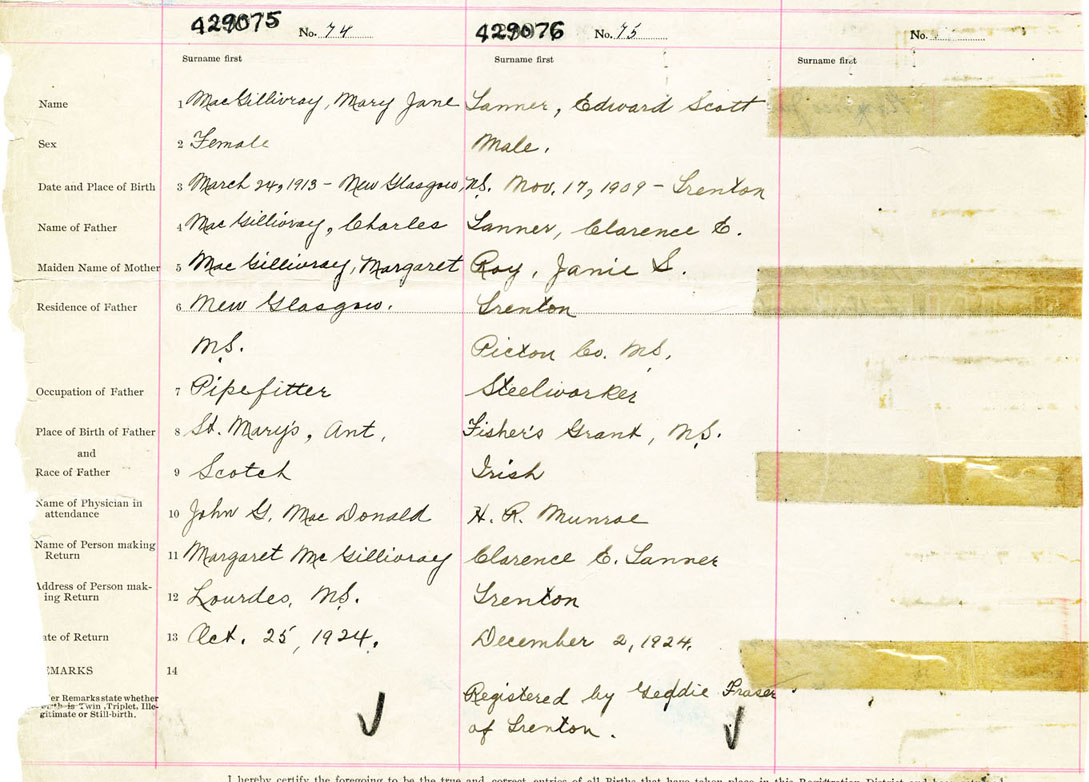 429075 No. 74 429076 No. 75 No.
Surname first Surname first Surname first
Name 1 MacGillivray, Mary Jane Tanner, Edward Scott
Sex 2 Female Male.
Date and Place of Birth 3 March 24, 1913 - New Glasgow, N.S. Nov. 17, 1909 - Trenton
Name of Father 4 MacGillivray, Charles Tanner, Clarence E.
Maiden Name of Mother 5 MacGillivray, Margaret Roy, Janie S.
Residence of Father 6 New Glasgow. Trenton
N.S. Pictou Co. N.S.
Occupation of Father 7 Pipefitter Steelworker
Place of Birth of Father 8 St. Mary's, Ant, Fisher's Grant, N.S.
and
Race of Father 9 Scotch Irish
Name of Physician in
attendance 10 John G. MacDonald H. R. Munroe
Name of Person making
Return 11 Margaret McGillivray Clarence E. Tanner
Address of Person mak-
ing Return 12 Lourdes, N.S. Trenton
ate of Return 13 Oct. 25, 1924. December 2, 1924.
EMARKS 14
er Remarks state whether Registered by Geddie Fraser
rth is Twin, Triplet, Ille-
gitimate or Still-birth. of Trenton.
I hereby certify the foregoing to be the true and correct entries of all Births that have taken place in this Registration District and